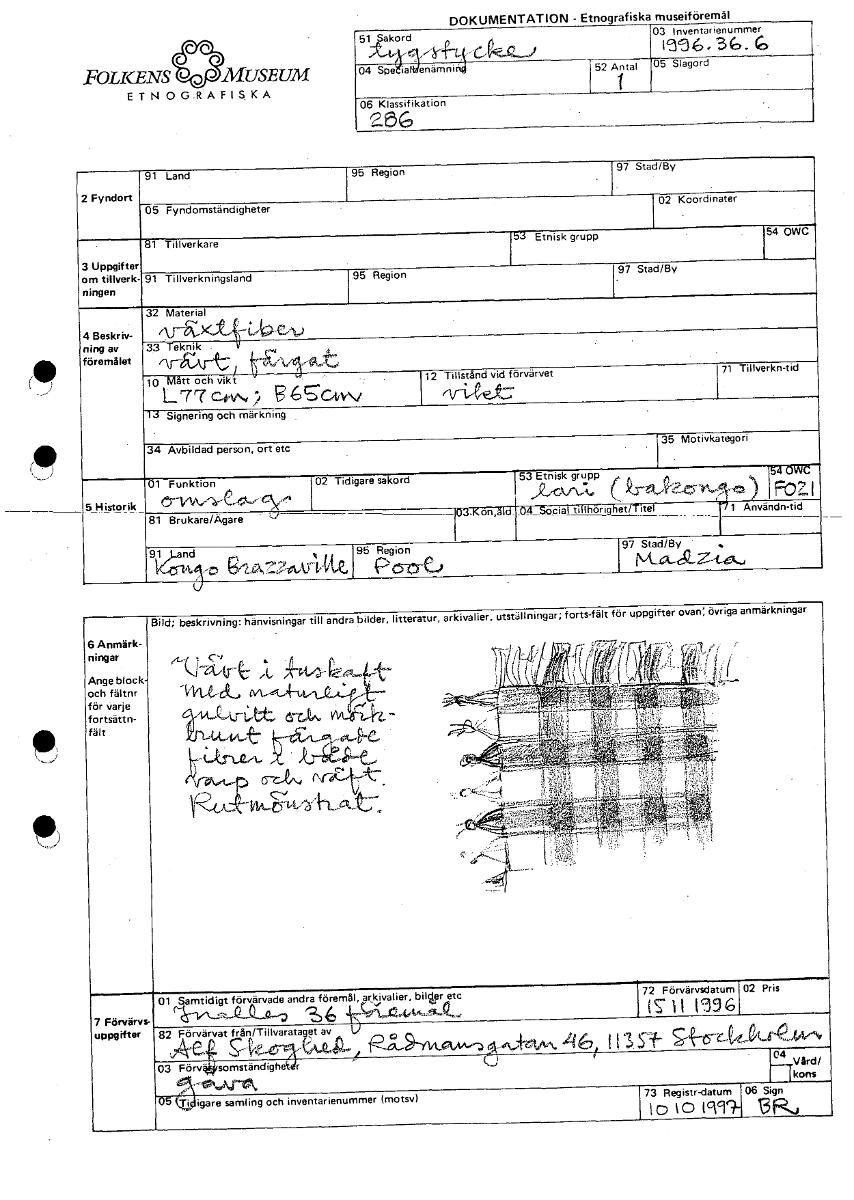 DOKUMENTATION - Etnografiska museiföremål
FOLKENS MUSEUM
ETNOGRAFISKA
51 Sakord
tygstycke
03 Inventarienummer
1996.36.6
04 Specialbenämning
52 Antal
1
05 Slagord
06 Klassifikation
286
2 Fyndort
91 Land
95 Region
97 Stad/By
05 Fyndomständigheter
02 Koordinater
3 Uppgifter
om tillverk-
ningen
81 Tillverkare
53 Etnisk grupp
54 OWC
91 Tillverkningsland
95 Region
97 Stad/By
4 Beskriv-
ning av
föremålet
32 Material
växtfiber
33 Teknik
vävt, färgat
10 Mått och vikt
L77cm; B65cm
12 Tillstånd vid förvärvet
71 Tillverkn-tid
13 Signering och märkning
34 Avbildad person, ort etc
35 Motivkategori
5 Historik
01 Funktion
omslag
02 Tidigare sakord
53 Etnisk grupp
lari (bakongo)
54 OWC
FO21
81 Brukare/Ägare
03 Kön, åld
04 Social tillhörighet/Titel
71 Användn-tid
91 Land
Kongo Brazzaville
95 Region
Pool
97 Stad/By
Madzia
6 Anmärk-
ningar
Ange block-
och fältnr
för varje
fortsättn-
fält
Bild; beskrivning: hänvisningar till andra bilder, litteratur, arkivalier, utställningar; forts-fält för uppgifter ovan; övriga anmärkningar
Vävt i tuskaft
med naturligt
gulvitt och mörk-
brunt färgade
fibrer i både
varp och väft.
Rutmönstrat.
7 Förvärvs-
uppgifter
01 Samtidigt förvärvade andra föremål, arkivalier, bilder etc
Inalles 36 föremål
72 Förvärvsdatum
15 11 1996
02 Pris
82 Förvärvat från/Tillvarataget av
Alf Skoglied, Rådmansgatan 46, 11357 Stockholm
03 Förvärvsomständigheter
gåva
04 Vård/
kons
05 Tidigare samling och inventarienummer (motsv)
73 Registr-datum
10 10 1997
06 Sign
BR